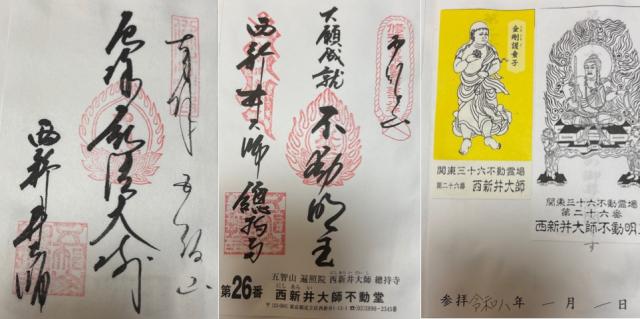 奉拝
五智山
厄除弘法大師
西新井大師
奉拝
五智山
大願成就
不動明王
西新井大師
總持寺
第26番
五智山 遍照院 西新井大師 總持寺
にしあらいだいし
西新井大師不動堂
にしあらい
金剛護童子
関東三十六不動霊場
第二十六番 西新井大師
関東三十六不動霊場
第二十六番
西新井大師不動明王
す
参拝 令和八年 一月 1日